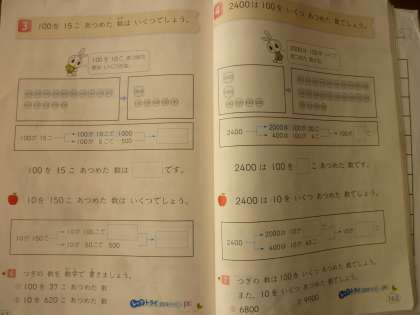 3 100を 15こ あつめた 数は いくつでしょう。
100を 15こ あつめた
100が 15こ
100が 10こで 1000
100が 5こで 500
100を 15こ あつめた 数は です。
10を 150こ あつめた 数は いくつでしょう。
10が 150こ
10が 100こで
10が 50こで 500
つぎの 数を 数字で 書きましょう。
100を 37こ あつめた 数
10を 620こ あつめた 数
4 2400は 100を いくつ あつめた 数でしょう。
2400は 100を いくつ
あつめた 数かな
2400
2000は 100が 20こ
400は 100が 4こ
2400は 100を こ あつめた 数です。
2400は 10を いくつ あつめた 数でしょう。
2400
2000は 10が
400は 10が
つぎの 数は 100を いくつ あつめた 数でしょう。
また、10を いくつ あつめた 数でしょう。
6800
9900